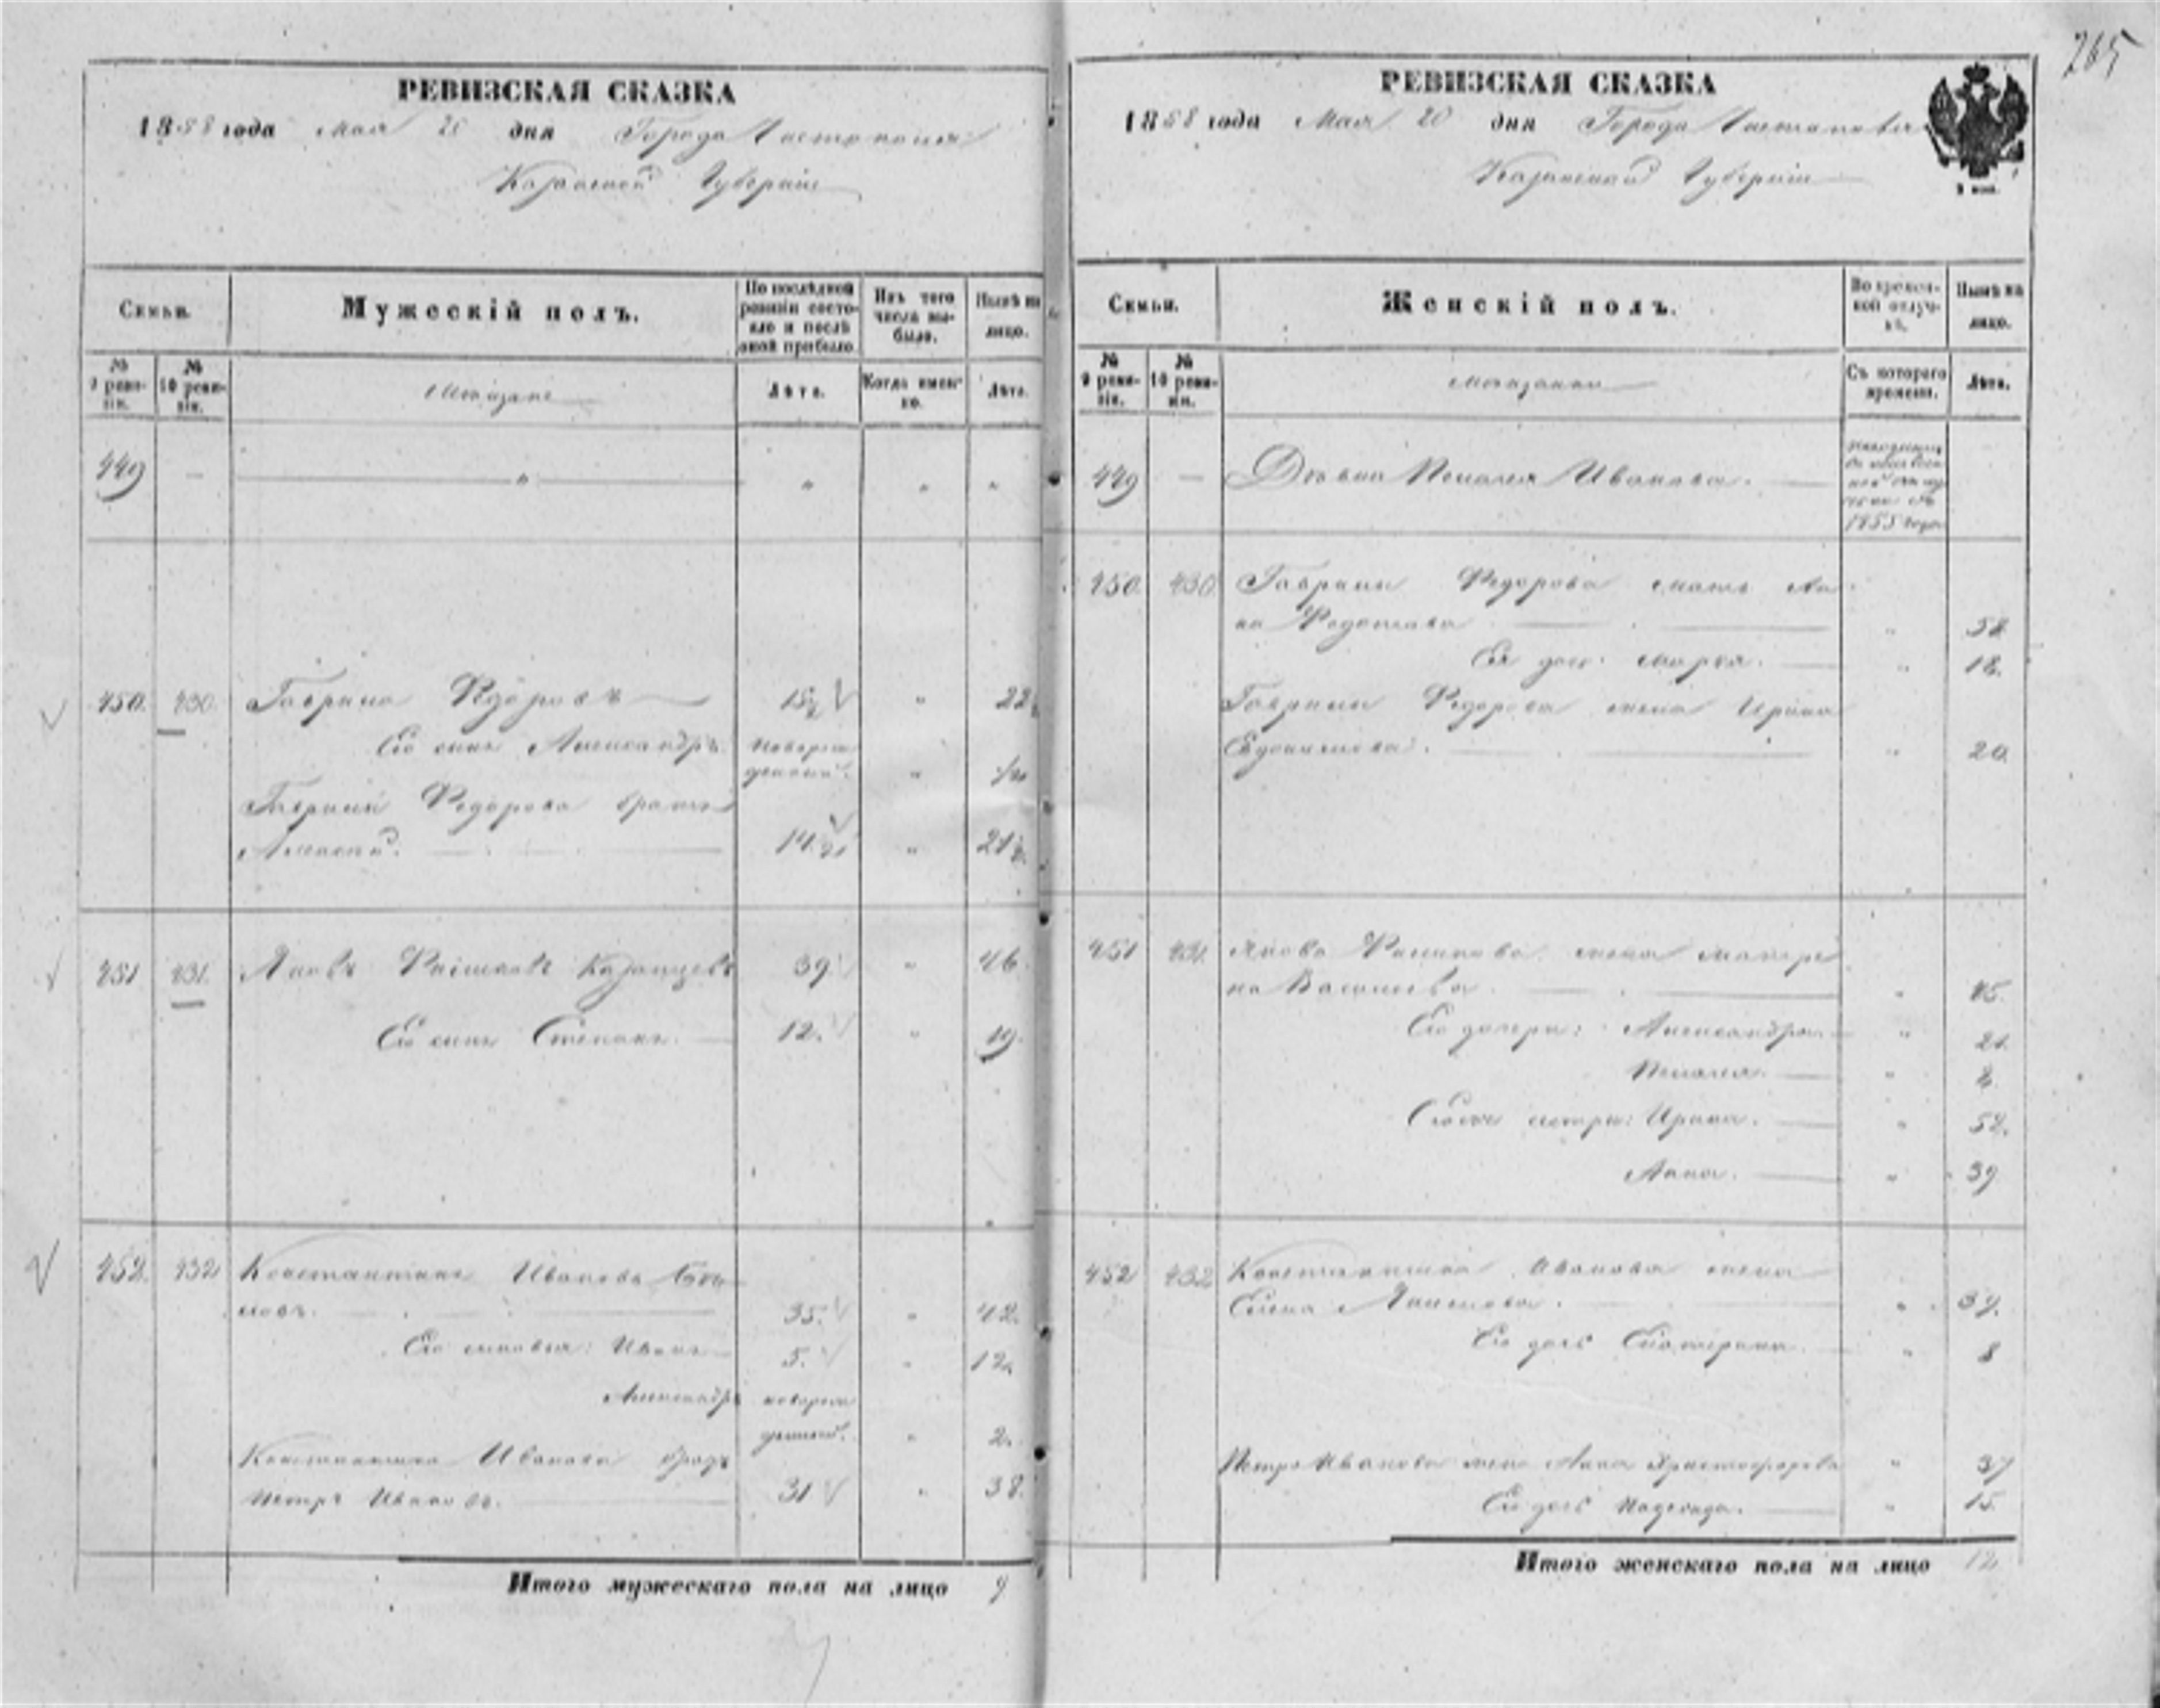 265
РЕВИЗСКАЯ СКАЗКА
1858 года Мая 20 дня Города Чистополя
Казанской Губернiи
Семьи.
Мужескiй полъ.
По послѣдней ревизiи состояло и послѣ оной прибыло
Изъ того числа выбыло.
Нынѣ на лицо.
№ 9 ревизiи.
№ 10 ревизiи.
Мѣщане
Лѣта.
Когда именно.
Лѣта.
449 — " " " "
450. 430. Гаврила Федоровъ 15 1/2 " 22 1/2
Его сынъ Александръ новорож
денный. "
Гаврилы Федорова братъ
Алексѣй. 14 " 21
451 431. Яковъ Казанцевъ 39 " 46.
Его сынъ Степанъ. 12. " 19.
452. 432 Константинъ Ивановъ
новъ. 35. " 42.
Его сыновья: Иванъ 5. " 12.
Александръ новорож
денный. " 2.
Константина Иванова братъ
Петръ Ивановъ. 31 " 38.
Итого мужескаго пола на лицо 9
РЕВИЗСКАЯ СКАЗКА
1858 года Мая 20 дня Города Чистополя
Казанской Губернiи
Семьи.
Женскiй полъ.
Во временной отлучкѣ.
Нынѣ на лицо.
№ 9 ревизiи.
№ 10 ревизiи.
Мѣщанки
Съ котораго времени.
Лѣта.
449 — Дѣвка Пелагея Иванова.
1855 года
450. 430 Гаврилы Федорова мать Ан
на Федотова " 58
Ея дочь Марья. " 18.
Гаврилы Федорова жена Ирина
Евдокимова. " 20.
451 431 Якова жена Матре
на Васильева. " 45.
Его дочери: Александра. " 21.
Пелагея. "
сестры: Ирина. " 52.
Анна. " 39
452 432 Константина Иванова жена
Елена " 37.
Его дочь Екатерина. " 8
Петра Иванова жена Анна Христофорова " 37
Его дочь Надежда. " 15.
Итого женскаго пола на лицо 12